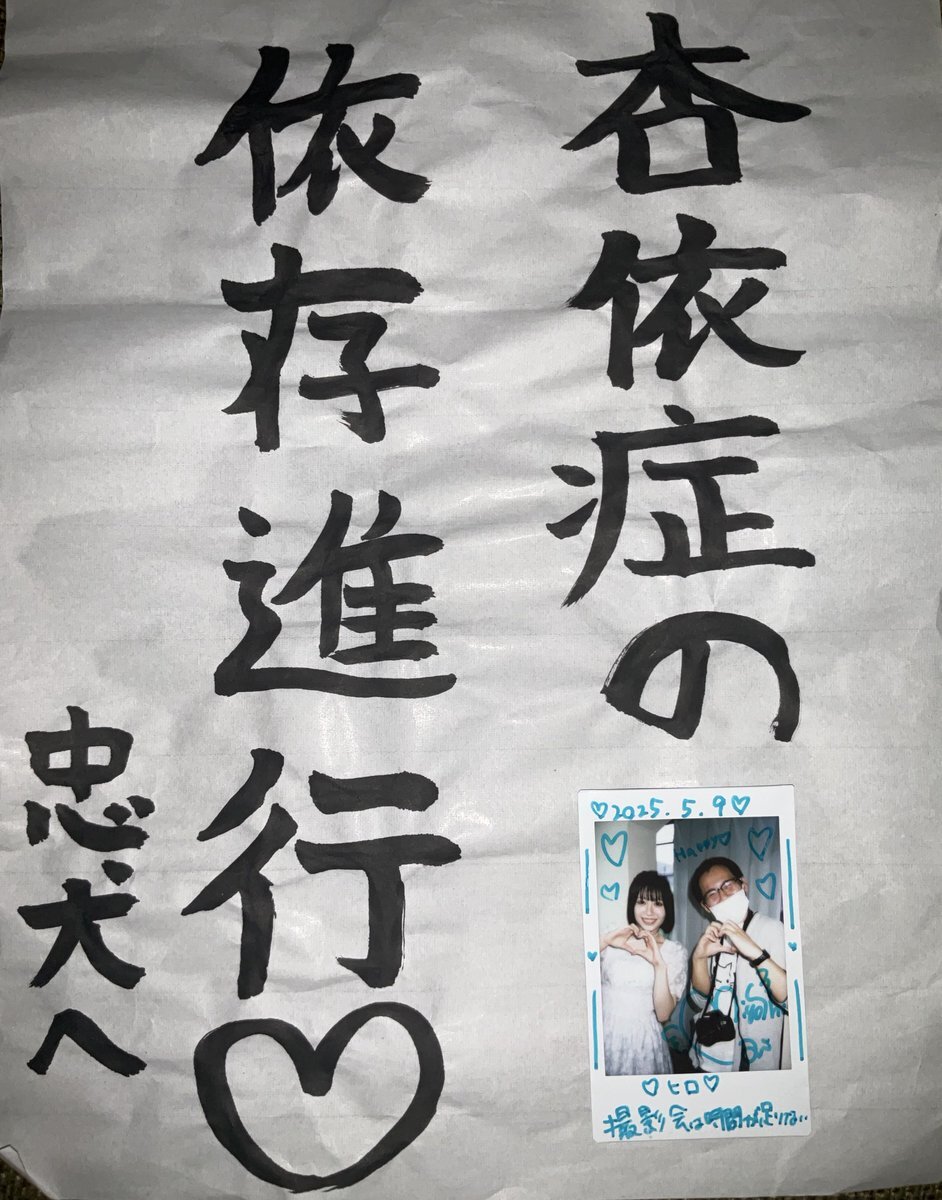 杏依症の
依存進行♡
忠犬へ
♡2025.5.9♡
Happy♡
♡ヒロ♡
撮影会は時間が足りない